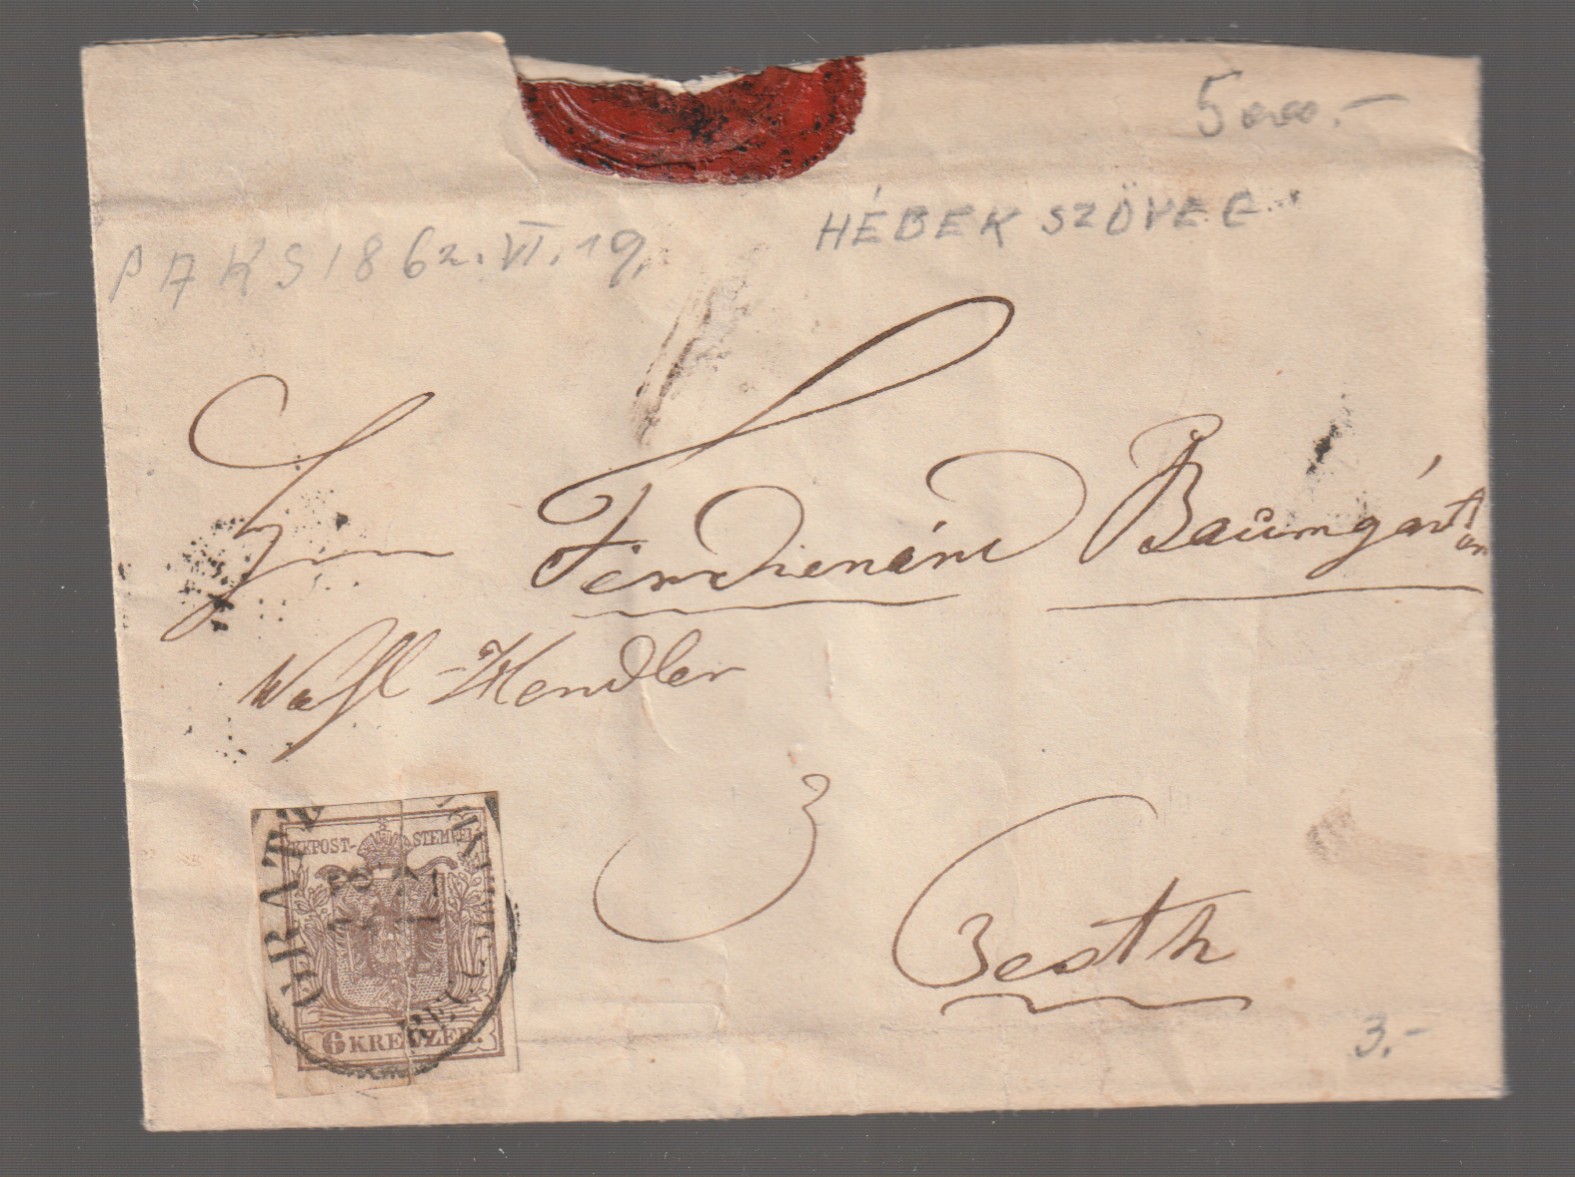 5000.-
HÉBEK SZÖVEG
PAKS 1862. VI. 19.
Ferdienánd Baumgárten
Hendler
Pesth
KKPOST-STEMPEL
6 KREUZER.
3.-